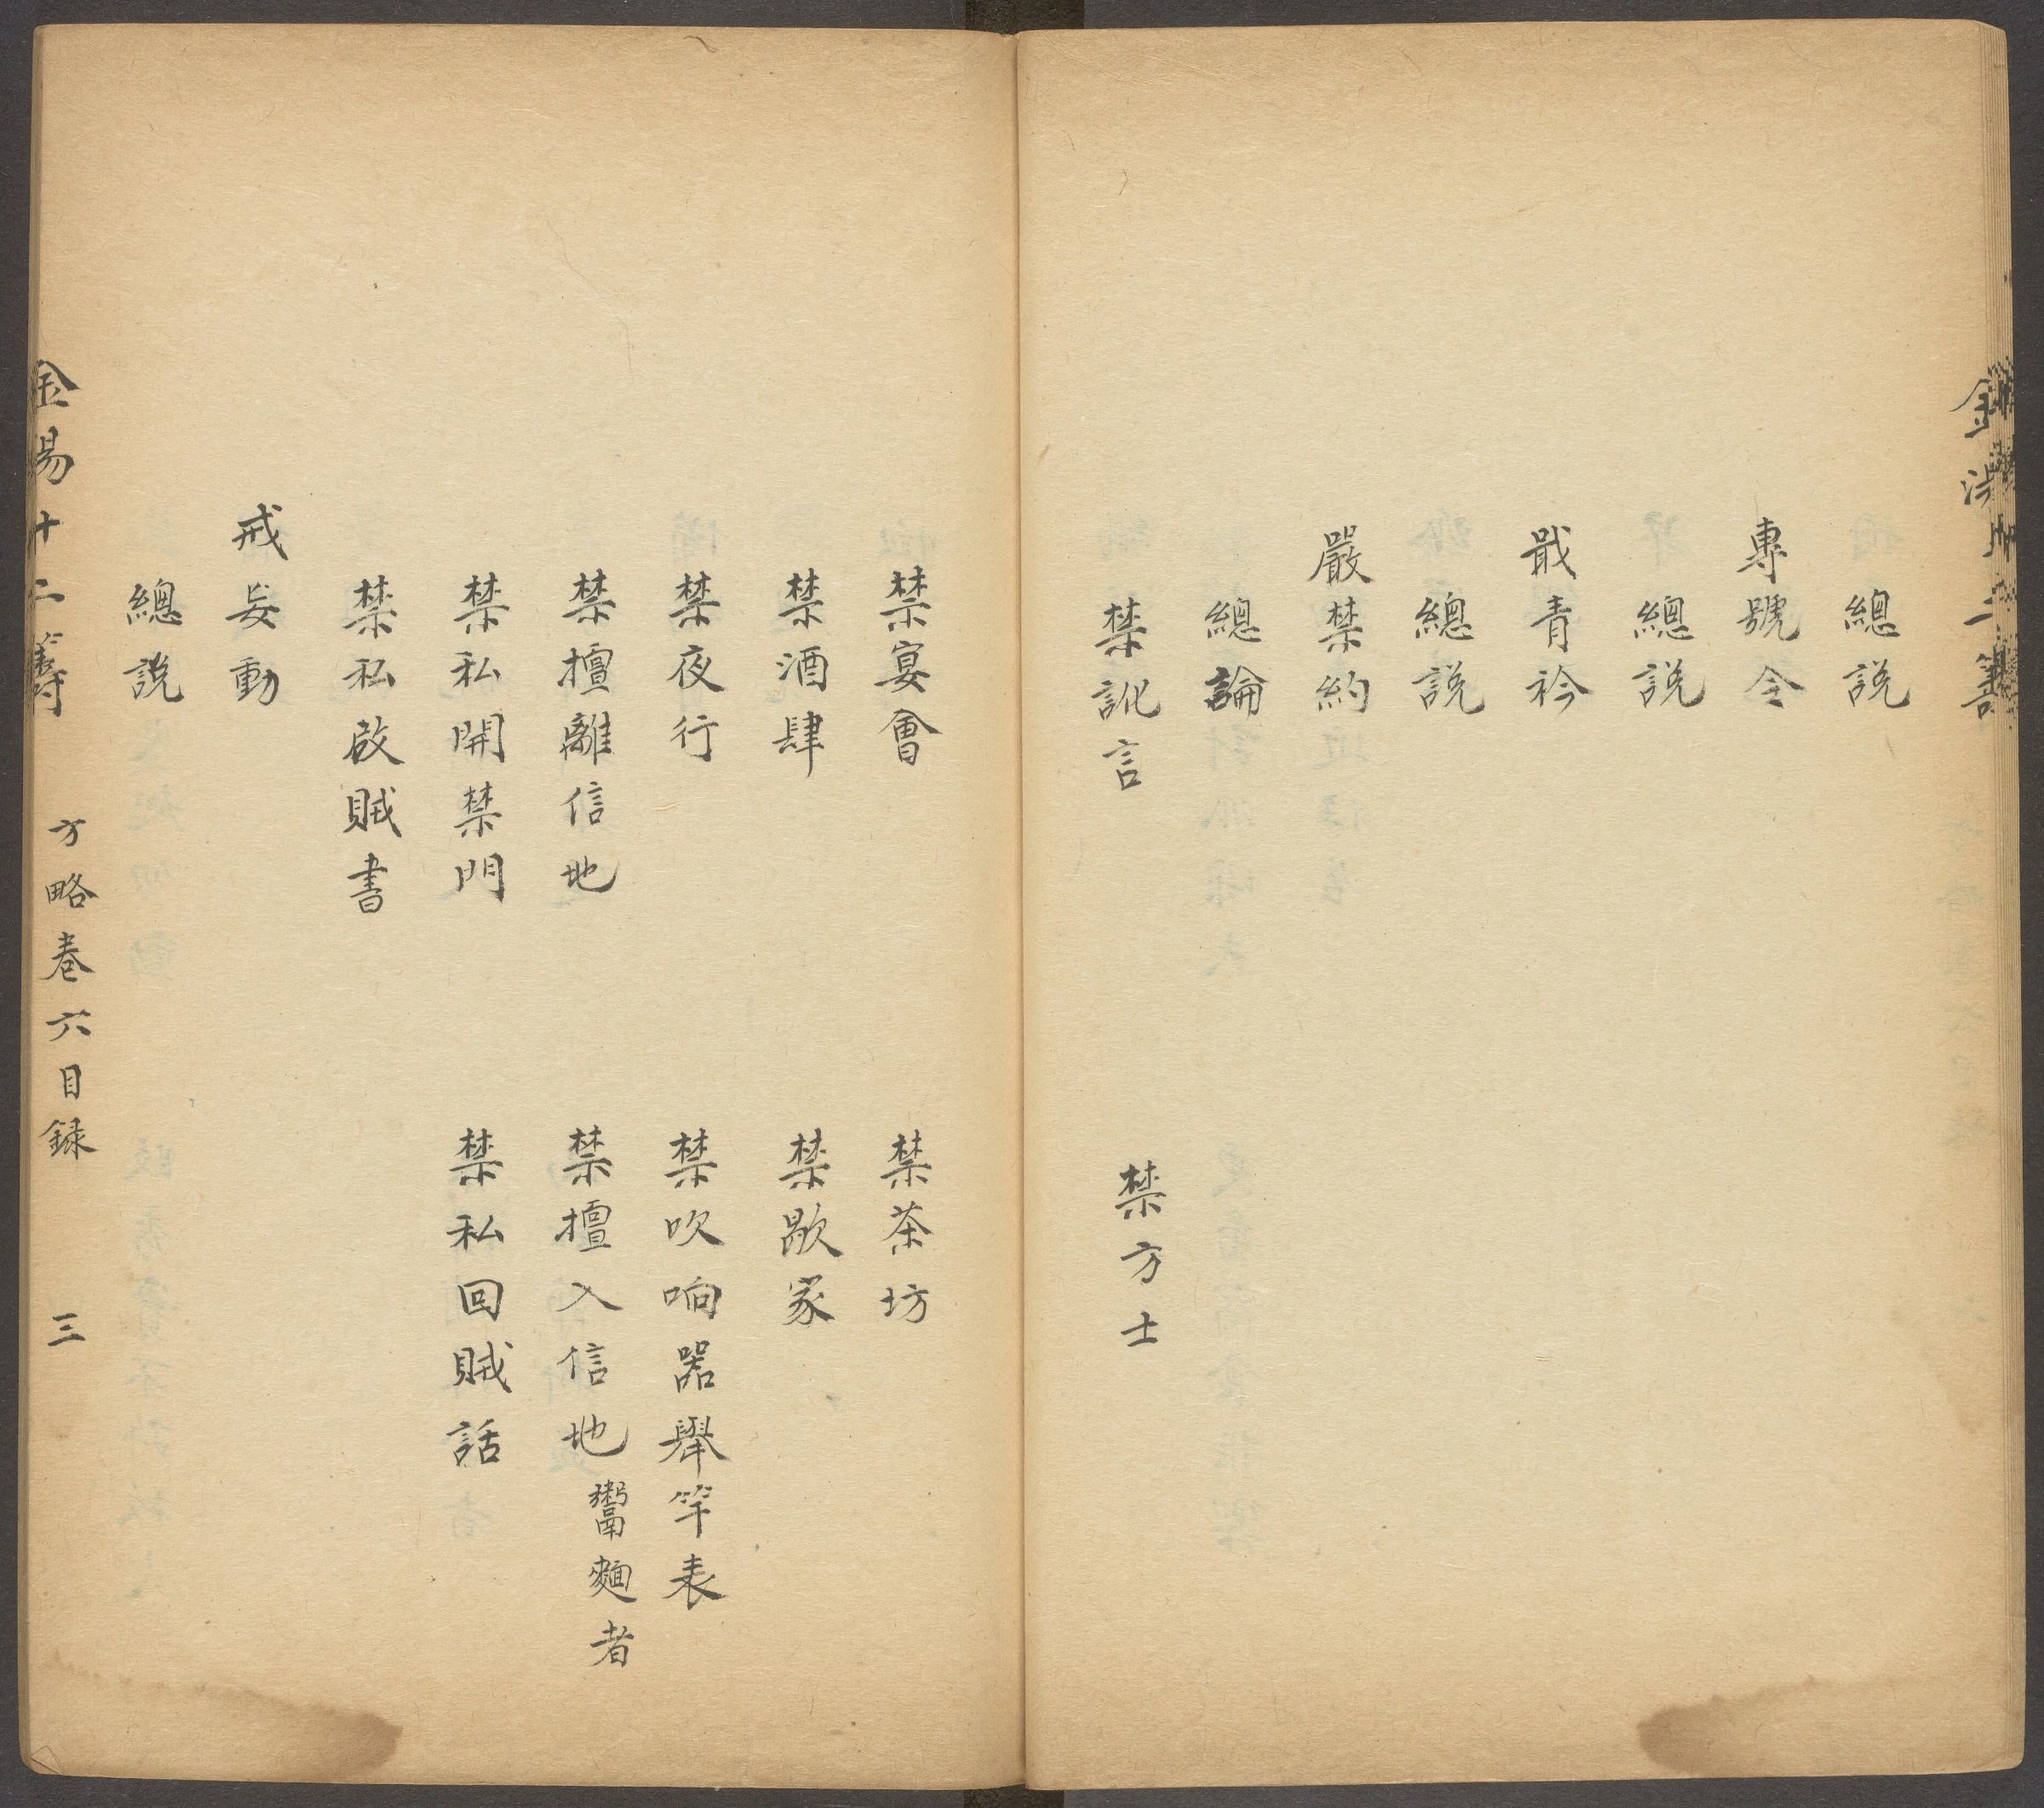 總說
專號令
總說
戢青衿
總說
嚴禁約
總論
禁訛言　禁方士
禁宴會　禁茶坊
禁酒肆　禁歇家
禁夜行　禁吹响器舉竿表
禁擅離信地　禁擅入信地鬻麵者
禁私開禁門　禁私回賊話
禁私啟賊書
戒妄動
總説
金湯十二籌　方略卷六目録　三